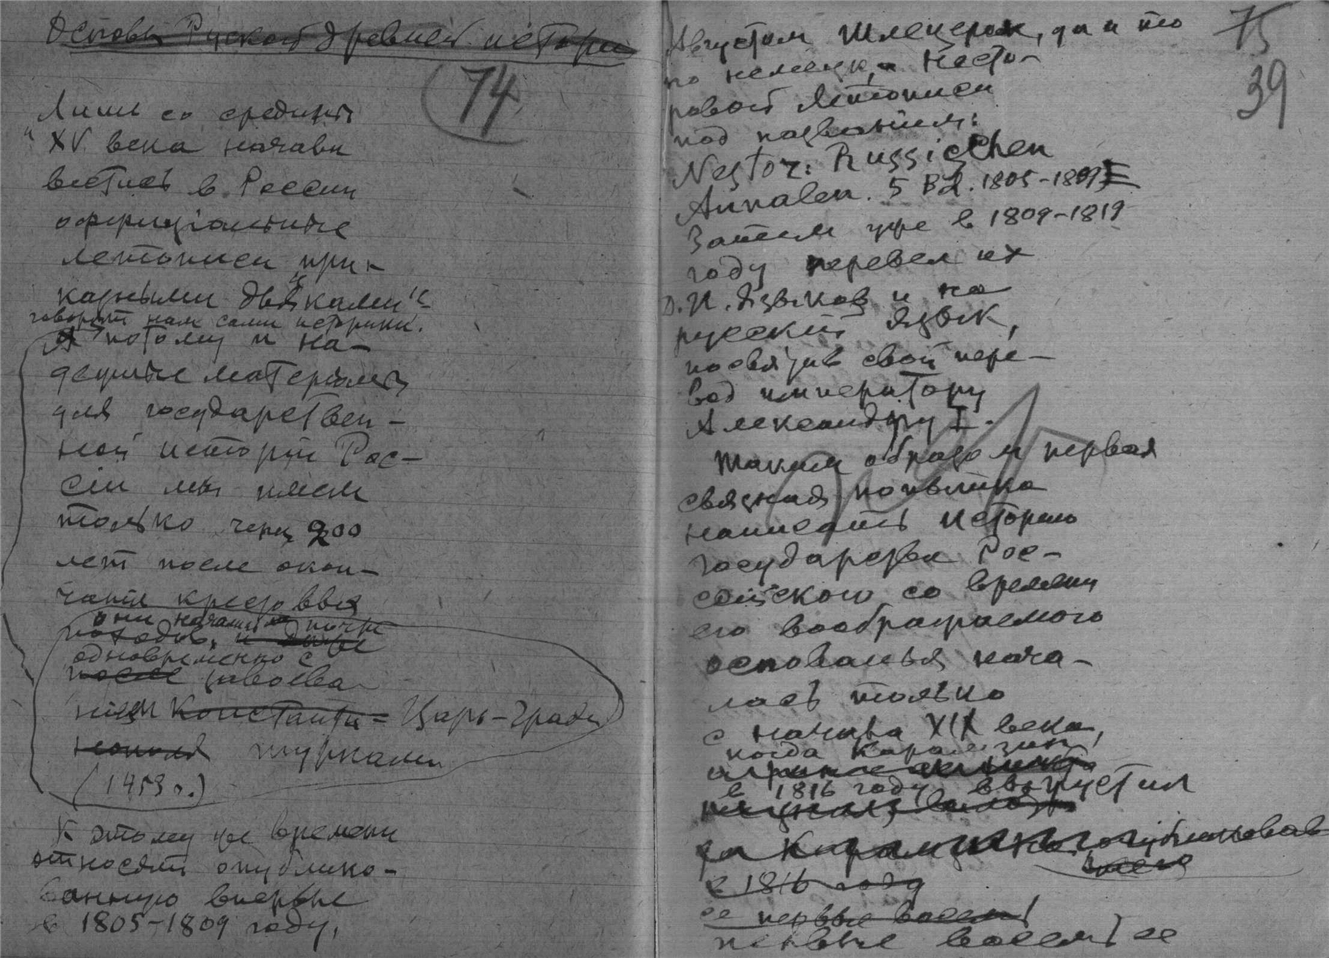 Основы Руской древней истори
74
Лишь со средины
XV. века начави
вестись в России
оффиціальные
летописи „при-
казными дьяками“
говорят нам сами историки.
А потому и на-
дежные матеріалы
для государствен-
ной исторіи Рос-
сіи мы имеем
только через 200
лет после окон-
чанія крестовых
они начались почти
походов, и даже
одновременно с
после завоева-
нием Константи- Царь-Града
нополя турками
(1453 г.)
К этому же времени
относят опублико-
ванную впервые
в 1805-1809 году,
75
39
Августом Шлецером, да и то
по немецки, Несто-
ровой Летописи
под названием:
Nestor: Russischen
Annalen. 5 Bd. 1805-1809
Затем уже в 1809-1819
году перевел их
Д. И. Языков и на
русский язык,
посвятив свой пере-
вод императору
Александру I.
Таким образом первая
связная попытка
написать Историю
Государства Рос-
сійского со времени
его воображаемого
основанья нача-
лась только
с начала XIX века,
когда Карамзин
в 1816 году выпустил
Карамзин опубликовав
в 1816 году
ее первые восемь
первые восемь ее